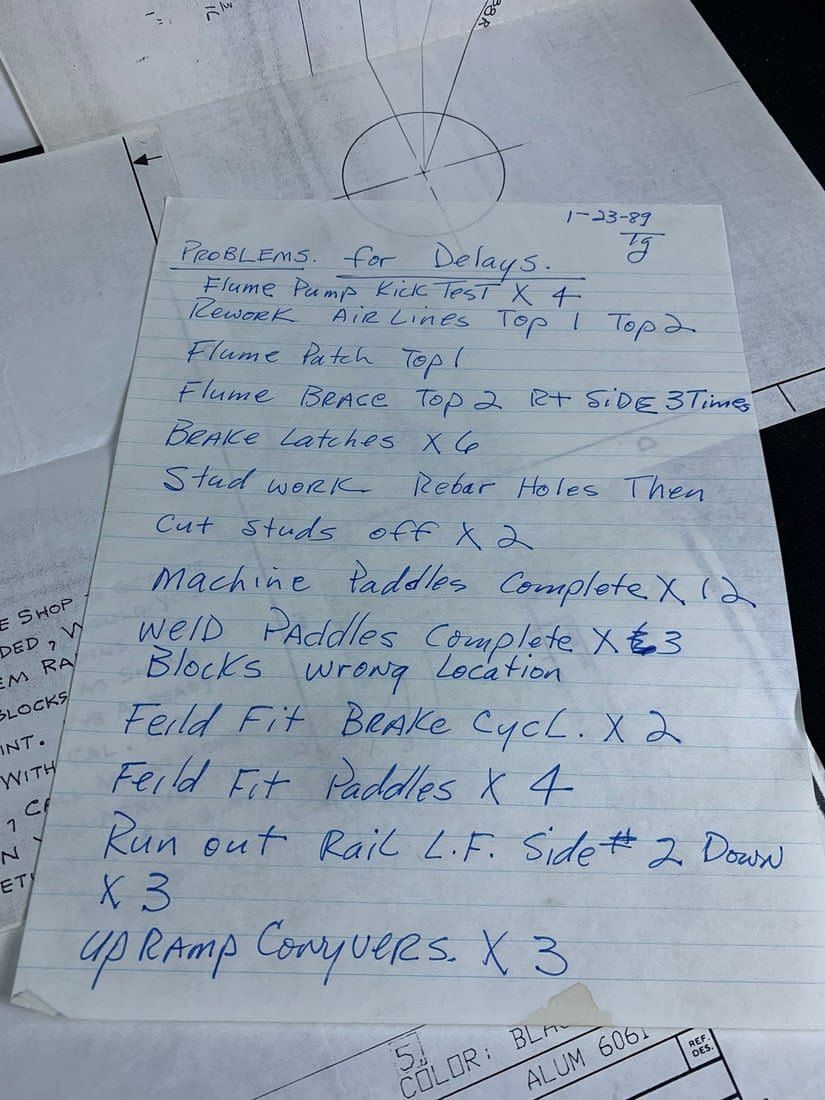 3/16
"
38R
1-23-89
Tg
PROBLEMS. for Delays.
Flume Pump Kick Test X 4
Rework Air Lines Top 1 Top 2
Flume Patch Top 1
Flume Brace Top 2 Rt Side 3 Times
Brake Latches X 6
Stud work Rebar Holes Then
Cut Studs off X 2
Machine Paddles Complete X 12
Weld Paddles Complete X 3
Blocks wrong Location
Feild Fit Brake Cycl. X 2
Feild Fit Paddles X 4
Run out Rail L.F. Side # 2 Down
X 3
Up Ramp Conyvers. X 3
E SHOP
DED, W
EM RA
BLOCKS
INT.
WITH
, CA
N
ETI
5.
COLOR: BLA
ALUM 6061
REF.
DES.